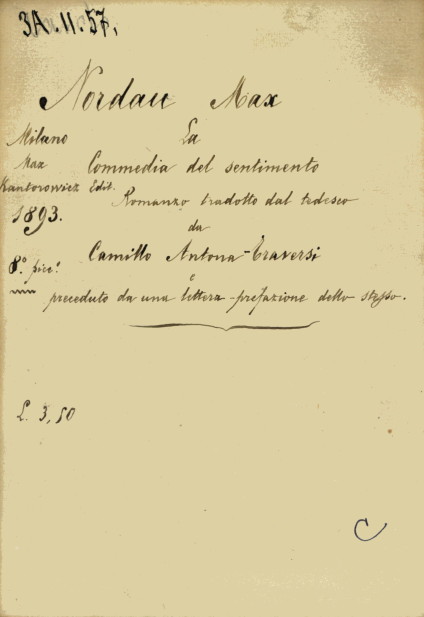 3A.11.57.
Nordau Max
Milano La
Max Commedia del sentimento
Kantorowicz Edit. Romanzo tradotto dal tedesco
1893. da
Camillo Antona-Traversi
8.° picc.° e
preceduto da una lettera-prefazione dello stesso.
L. 3,50
C